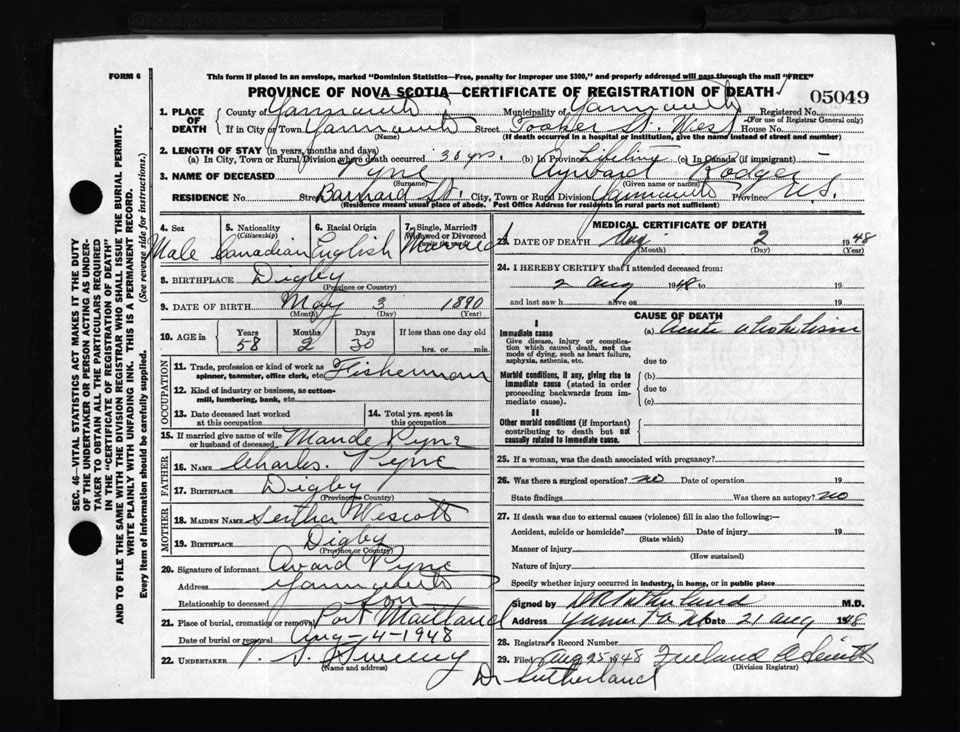 FORM 6
This form if placed in an envelope, marked "Dominion Statistics—Free, penalty for improper use $300," and properly addressed will pass through the mail "FREE"
PROVINCE OF NOVA SCOTIA—CERTIFICATE OF REGISTRATION OF DEATH
05049
1. PLACE OF DEATH
County of Yarmouth Municipality of Yarmouth Registered No.
(For use of Registrar General only)
If in City or Town Yarmouth Street Tooker St. West House No.
(Name) (If death occurred in a hospital or institution, give the name instead of street and number)
2. LENGTH OF STAY (in years, months and days)
(a) In City, Town or Rural Division where death occurred 30 yrs. (b) In Province Lifetime (c) In Canada (if immigrant) —
3. NAME OF DECEASED Pyne Rodger
(Surname) (Given name or names)
RESIDENCE No. Street Barnard St. City, Town or Rural Division Yarmouth Province N.S.
(Residence means usual place of abode. Post Office Address for residents in rural parts not sufficient)
4. Sex 5. Nationality 6. Racial Origin 7. Single, Married, Widowed or Divorced
(Citizenship) (write the word)
Male Canadian English Married
8. BIRTHPLACE Digby
(Province or Country)
9. DATE OF BIRTH May 3 1890
(Month) (Day) (Year)
10. AGE in Years Months Days If less than one day old
58 2 30 hrs. or min.
OCCUPATION
11. Trade, profession or kind of work as spinner, teamster, office clerk, etc. Fisherman
12. Kind of industry or business, as cotton-mill, lumbering, bank, etc.
13. Date deceased last worked at this occupation
14. Total yrs. spent in this occupation
15. If married give name of wife or husband of deceased Maude Pyne
FATHER
16. NAME Charles. Pyne
17. BIRTHPLACE Digby
(Province or Country)
MOTHER
18. MAIDEN NAME Wescott
19. BIRTHPLACE Digby
(Province or Country)
20. Signature of informant Avard Pyne
Address Yarmouth
Relationship to deceased Son
21. Place of burial, cremation or removal Port Maitland
Date of burial or removal Aug-4-1948
22. UNDERTAKER V. S. Sweeny
(Name and address)
MEDICAL CERTIFICATE OF DEATH
23. DATE OF DEATH Aug 2 1948
(Month) (Day) (Year)
24. I HEREBY CERTIFY that I attended deceased from:
2 Aug 1948 to 19
and last saw h alive on 19
CAUSE OF DEATH
I
Immediate cause
Give disease, injury or complication which caused death, not the mode of dying, such as heart failure, asphyxia, asthenia, etc.
(a) Acute alcoholism
due to
Morbid conditions, if any, giving rise to immediate cause (stated in order proceeding backwards from immediate cause).
(b)
due to
(c)
II
Other morbid conditions (if important) contributing to death but not causally related to immediate cause.
25. If a woman, was the death associated with pregnancy?
26. Was there a surgical operation? no Date of operation 19
State findings Was there an autopsy? no
27. If death was due to external causes (violence) fill in also the following:—
Accident, suicide or homicide? Date of injury 19
(State which)
Manner of injury
(How sustained)
Nature of injury
Specify whether injury occurred in industry, in home, or in public place
Signed by D R Sutherland M.D.
Address Yarmouth NS Date 21 Aug 1948
28. Registrar's Record Number
29. Filed Aug 25 1948
(Division Registrar)
Dr Sutherland
SEC. 46—VITAL STATISTICS ACT MAKES IT THE DUTY
OF THE UNDERTAKER OR PERSON ACTING AS UNDER-
TAKER TO OBTAIN ALL THE PARTICULARS REQUIRED
IN THE "CERTIFICATE OF REGISTRATION OF DEATH"
AND TO FILE THE SAME WITH THE DIVISION REGISTRAR WHO SHALL ISSUE THE BURIAL PERMIT.
WRITE PLAINLY WITH UNFADING INK. THIS IS A PERMANENT RECORD.
Every item of information should be carefully supplied. (See reverse side for instructions.)